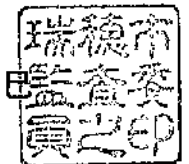 瑞穂市
監査委
員之印